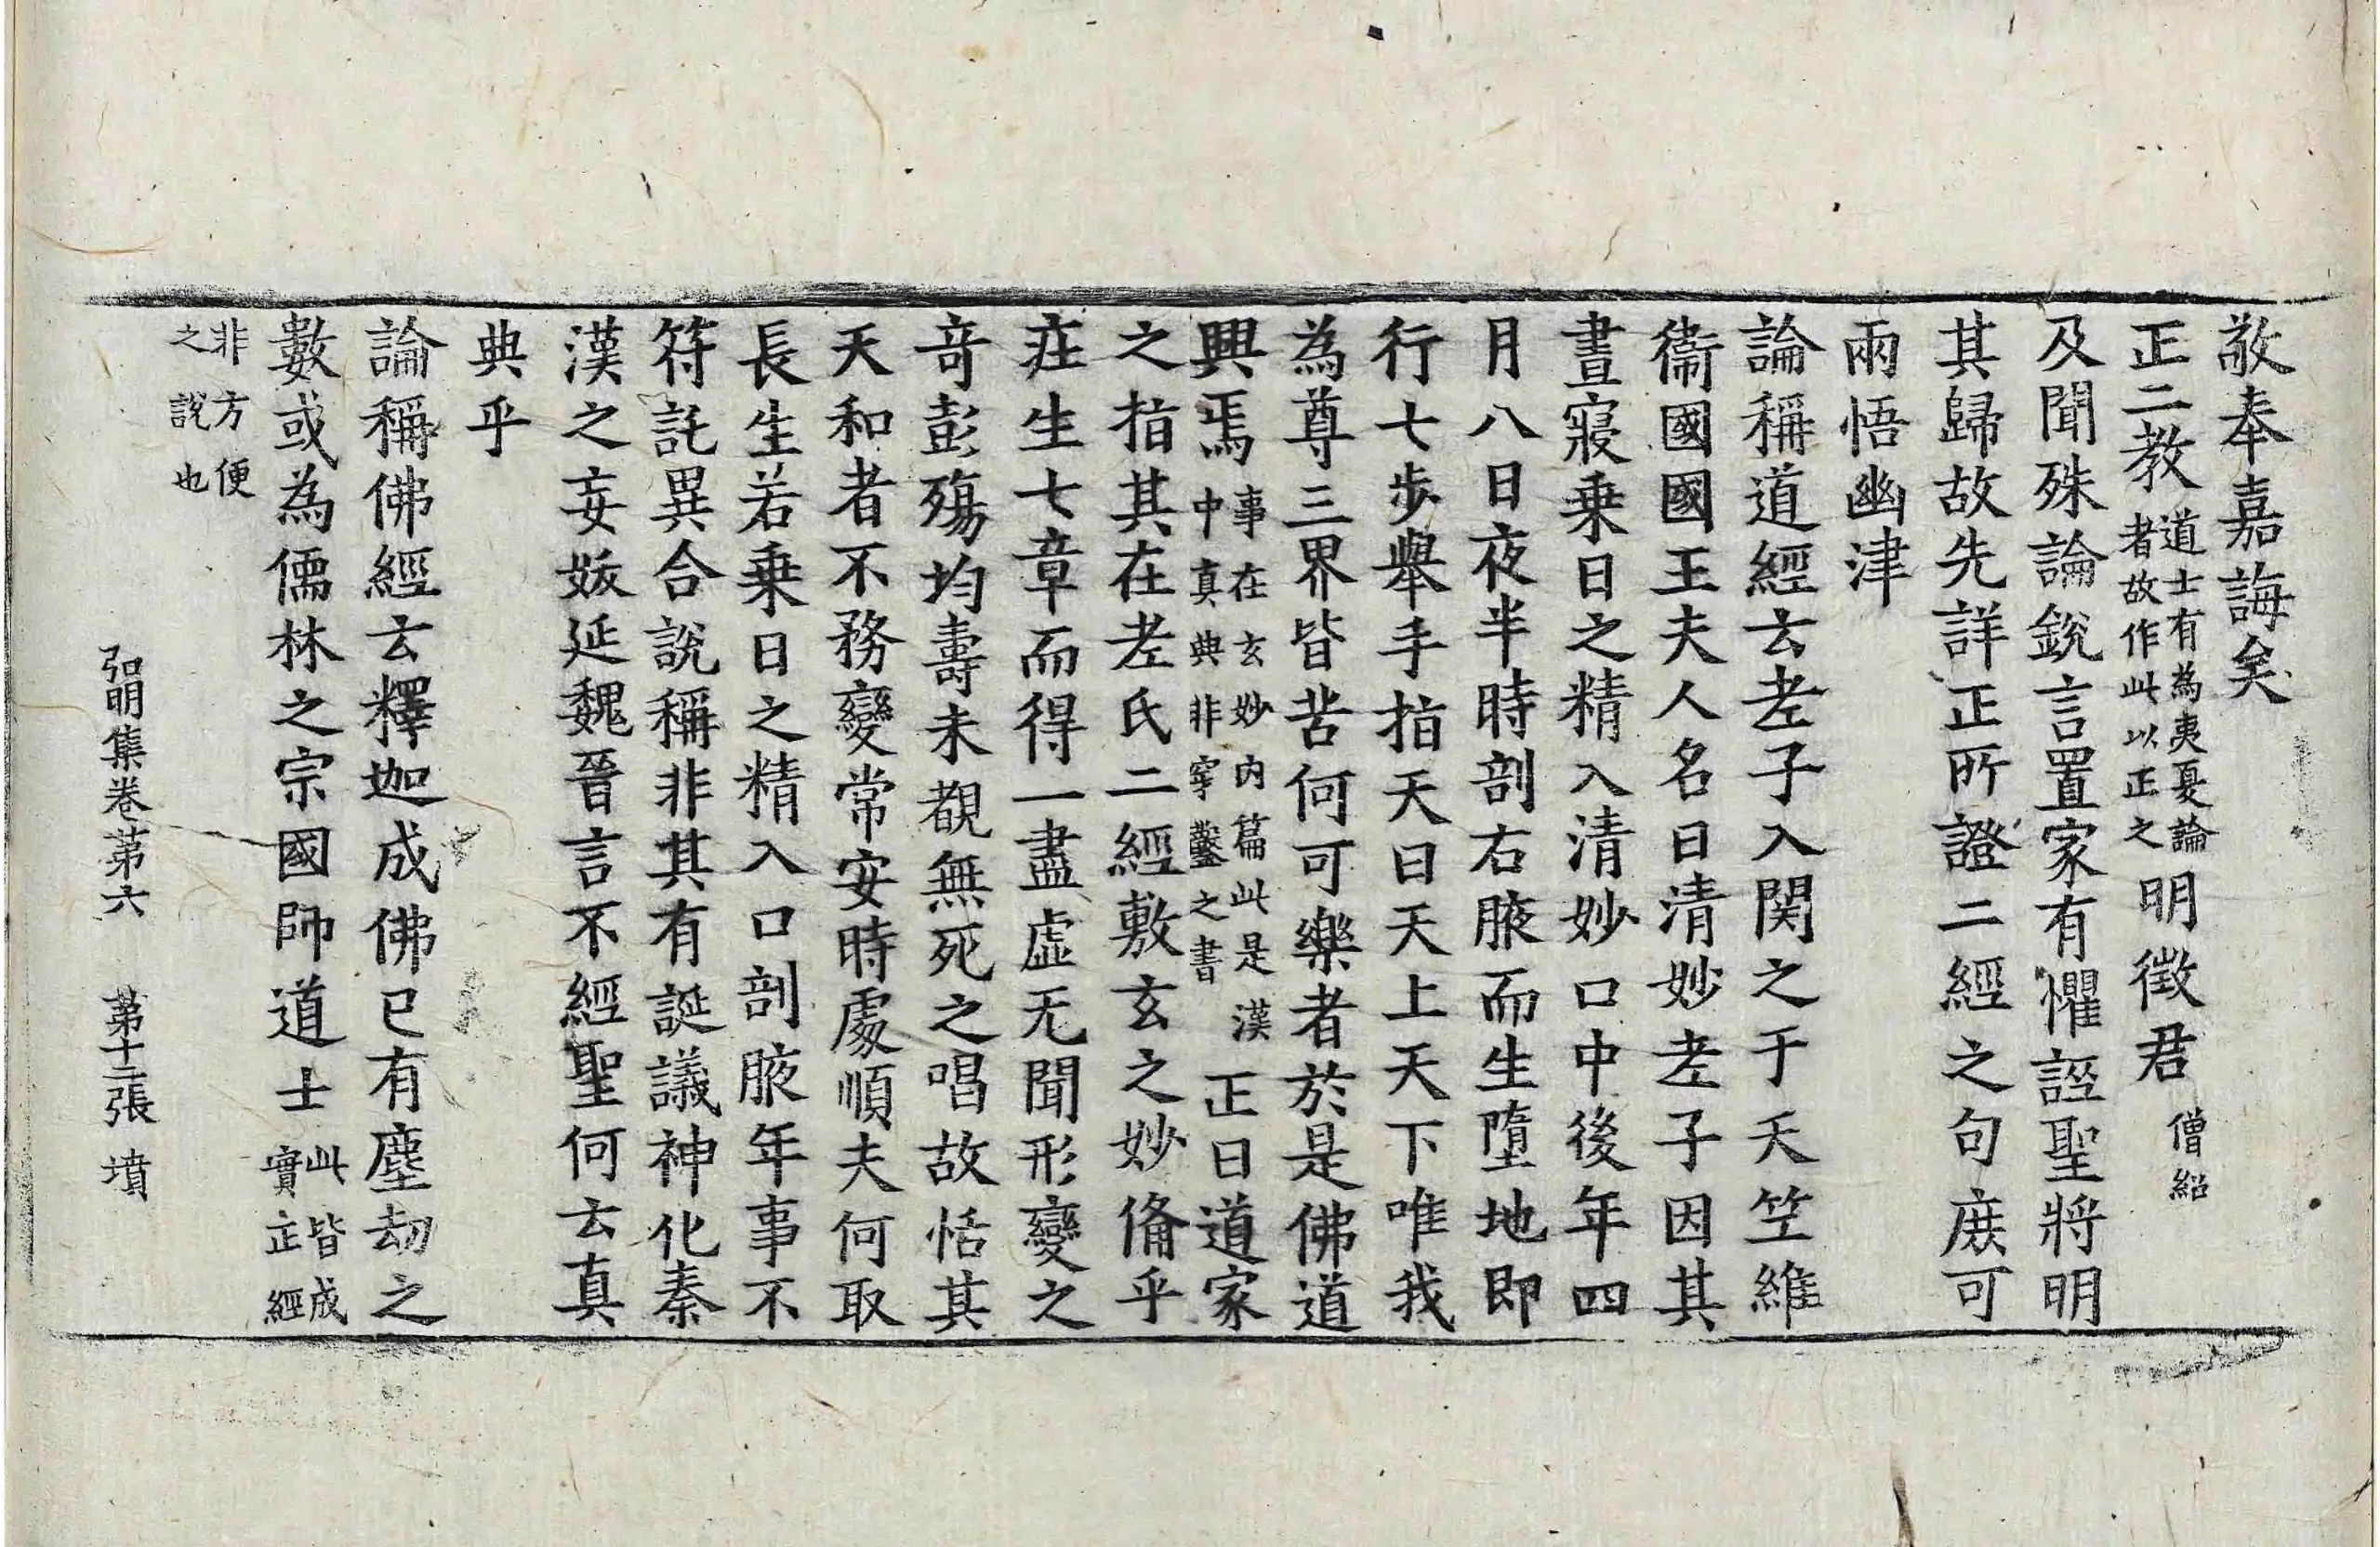 敬奉嘉誨矣
正二教道士有為夷夏論者故作此以正之明徵君僧紹
及聞殊論銳言置家有懼誣聖將明
其歸故先詳正所證二經之句庻可
兩悟幽津
論稱道經云老子入関之于天竺維
衞國國王夫人名曰清妙老子因其
晝寢乗日之精入清妙口中後年四
月八日夜半時剖右腋而生墮地即
行七歩舉手指天曰天上天下唯我
為尊三界皆苦何可樂者於是佛道
興焉事在玄妙内篇此是漢中真典非穿鑿之書正曰道家
之指其在老氏二經敷玄之妙俻乎
莊生七章而得一盡虚无聞形變之
奇彭殤均壽未覩無死之唱故恬其
天和者不務變常安時處順夫何取
長生若乗日之精入口剖腋年事不
符託異合說稱非其有誕議神化秦
漢之妄妖延魏晉言不經聖何云真
典乎
論稱佛經云釋迦成佛已有塵劫之
數或為儒林之宗國師道士此皆成實正經
非方便之說也
弘明集卷第六　第十二張　墳